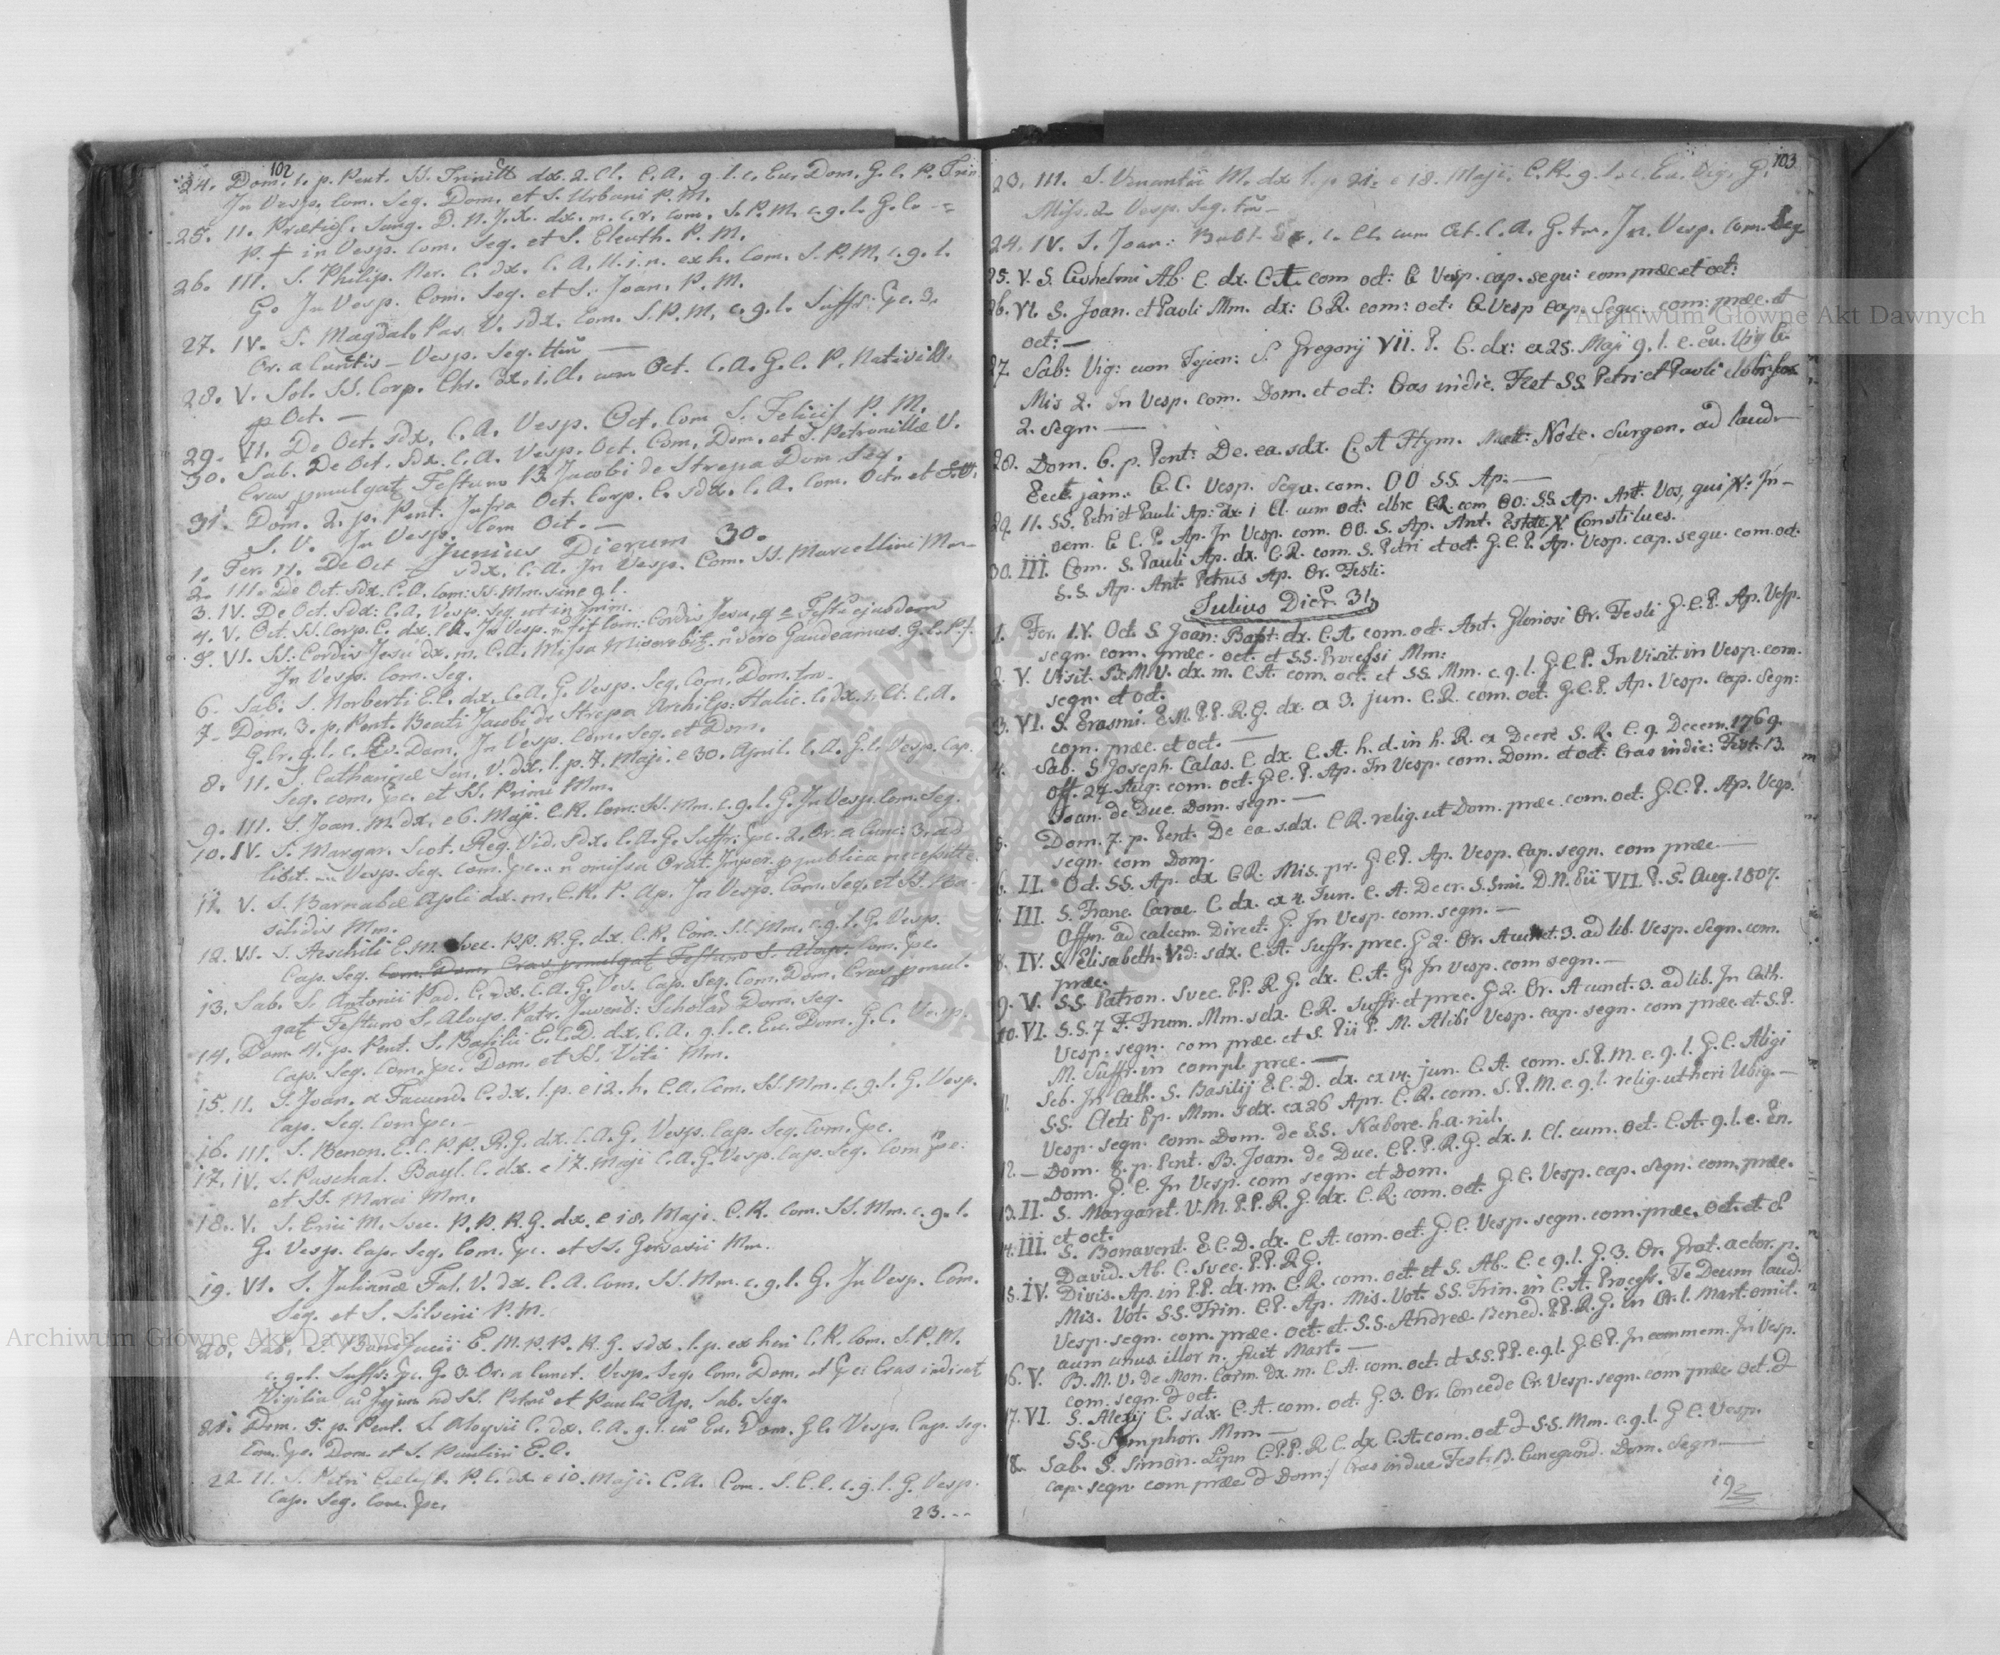 102
24. Dom. 1. p. Pent. SS. Trinitt dx. 2. Cl. C. A. g. l. c. Eu. Dom. G. C. P. Trin.
In Vesp. Com. Seq. Dom. et S. Urbani P. M.
25. II. Pretios. Sang. D. N. J. X. dx. m. c. r. com. S. P. M. c. g. l. G. C.
P. + in Vesp. Com. Seq. et S. Eleuth. P. M.
26. III. S. Philip. Ner. C. dx. C. A. U. i. n. exh. Com. S. P. M. c. g. l.
G. In Vesp. Com. Seq. et S. Joan. P. M.
27. IV. S. Magdal. Paz. V. sdx. Com. S. P. M. c. g. l. Suffr: pc. 3.
Or. a Cunctis – Vesp. Seq. ttm —
28. V. Sol. SS. Corp. Chr. dx. 1. Cl. cum Oct. C. A. G. C. P. Nativitt.
p Oct. —
29. VI. De Oct. sdx. C. A. Vesp. Oct. Com S. Felicis P. M.
30. Sab. De Oct. sdx. C. A. Vesp. Oct. Com. Dom. et S. Petronillæ V.
Cras pmulgat Festum B. Jacobi de Strepa Dom. Seq.
31. Dom. 2. p. Pent. Infra Oct. Corp. C. sdx. C. A. Com. Octæ et
S. V. In Vesp. Com Oct. —
Junius Dierum 30.
1. Fer. II. De Oct — sdx. C. A. In Vesp. Com. SS. Marcellini Mm —
2. III. De Oct. sdx. C. A. Com: SS. Mm. sine g l.
3. IV. De Oct. sdx: C. A. Vesp. Seq. ut in prim.
4. V. Oct. SS. Corp. C. dx. C. A. In Vesp. n fit Com: Cordis Jesu, q e Festu ejusdem
5. VI. SS: Cordis Jesu dx. m. C. A. Missa Miserebit. n vero Gaudeamus. G. C. P.
In Vesp. Com. Seq.
6. Sab. S. Norberti E. C. dx. C. A. G. Vesp. Seq. Com. Dom. tm.
7. Dom. 3. p. Pent. Beati Jacobi de Strepa ArchiEp: Halic. C. dx. 1. Cl. C. A.
G. Cr. g. l. c. Ev. Dom. In Vesp. Com. Seq. et Dom.
8. II. S. Catharinæ Sen. V. dx. l. p. 7. Maji e 30. April. C. A. G. C. Vesp. Cap.
Seq. com. pc. et SS. Primi Mm.
9. III. S. Joan. M. dx. e 6. Maji. C. R. Com: SS. Mm. c. g. l. G. In Vesp. Com. Seq.
10. IV. S. Margar. Scot. Reg. Vid. sdx. C. A. G. Suffr. pc. 2. Or. a Cunc: 3. ad
libit. Vesp. Seq. Com. pc. n omissa Orat. Imper. p publica necessitte.
11. V. S. Barnabæ Apli dx. m. C. R. P. Ap. In Vesp. Com. Seq. et SS. Ba-
silidis Mm.
12. VI. S. Aeschili E. M. Svec. PP. R. G. dx. C. R. Com. SS. Mm. c. g. l. G. Vesp.
Cap. Seq. Com. Dom Cras pmulgat Festum S. Aloys. Com. pc.
13. Sab. S. Antonii Pad. C. dx. C. A. G. Ves. Cap. Seq. Com. Dom. Cras pmul-
gat Festum S. Aloys. Patr. Juvent: Scholar Dom. Seq.
14. Dom. 4. p. Pent. S. Basilii E. C. D. dx. C. A. g. l. c. Eu. Dom. G. C. Vesp.
Cap. Seq. Com. pc. Dom. et SS. Viti Mm.
15. II. S. Joan. a Facund. C. dx. l. p. e 12. h. C. A. Com. SS. Mm. c. g. l. G. Vesp.
Cap. Seq. Com. pc.
16. III. S. Benon. E. C. P. P. R. G. dx. C. A. G. Vesp. Cap. Seq. Com. pc.
17. IV. S. Paschal. Bayl. C. dx. e 17. Maji C. A. G. Vesp. Cap. Seq. Com pc:
et SS. Marci Mm.
18. V. S. Erici M. Svec. P. P. R. G. dx. e 18. Maji. C. R. Com. SS. Mm. c. g. l.
G. Vesp. Cap. Seq. Com. pc. et SS. Gervasii Mm.
19. VI. S. Julianæ Fal. V. dx. C. A. Com. SS. Mm. c. g. l. G. In Vesp. Com.
Seq. et S. Silverii P. M.
20. Sab. S. Bonifacii E. M. P. P. R. G. sdx. l. p. ex heri C. R. Com. S. P. M.
c. g. l. Suffr: pc. G. 3. Or. a Cunct. Vesp. Seq. Com. Dom. et pc: Cras indicet
Vigilia cu Jejun ad SS. Petru et Paulu Ap. Sab. Seq.
21. Dom. 5. p. Pent. S. Aloysii C. dx. C. A. g. l. cu Eu. Dom. G C. Vesp. Cap. Seq.
Com. pc. Dom. et S. Paulini E. C.
22. II. S. Petri Cælest. P. C. dx. e 10. Maji. C. A. Com. S. C. C. c. g. l. G. Vesp.
Cap. Seq. Com. pc.
23. --
103
23. III. S. Venantii M. dx l. p 21. e 18. Maji. C. R. g. l. c. Eu. Vig. G.
Miss. 2 Vesp. Seq. tm –
24. IV. S. Joan: Bapt. dx. 1. Cl. cum Oct. C. A. G. tm. In. Vesp. Com. Seq
25. V. S. Guilhelmi Ab. C. dx. C. A. com oct: G Vesp. cap. sequ: com præ. et oct:
26. VI. S. Joan. et Pauli Mm. dx: C. R. com: oct: G Vesp Cap. Sequ. com: præ. et
oct: —
27. Sab: Vig: cum Jejun: S. Gregorij VII. P. C. dx: ex 25. Maji g. l. e. eu. Vig G.
Mis 2. In Vesp. com. Dom. et oct: Cras indic. Fest SS Petri et Pauli
2. segn. —
28. Dom. 6. p. Pent: De ea. sdx. C. A Hym. Matt: Nocte. Surgen. ad laud.
Ecce jam. G. C. Vesp. Sequ. com. OO SS. Ap: —
29. II. SS. Petri et Pauli Ap: dx. 1 Cl. cum oct: C. R. com OO: SS. Ap. Ant. Vos, qui N: In-
oem. G C. P. Ap. In Vesp. com. OO. S. Ap. Ant. Estote N Constitues.
30. III. Com. S. Pauli Ap. dx. C. R. com. S. Petri et oct. G. C. P. Ap. Vesp. cap. sequ. com. oct.
S. S. Ap. Ant. Petrus Ap. Or. Festi:
Julius Dier. 31
1. Fer. IV. Oct. S Joan: Bapt: dx. C. A. com. oct. Ant. Gloriosi Or. Festi G. C. P. Ap. Vesp.
segn. com. præc. oct. et SS. Processi Mm:
2. V. Visit. B. M. V. dx. m. C. A. com. oct. et SS. Mm. c. g. l. G. C. P. In Visit. in Vesp. com.
segn. et oct.
3. VI. S. Erasmi. E. M. P. P. R. G. dx. ex 3. jun. C. R. com. oct. G. C. P. Ap. Vesp. Cap. segn:
com. præc. et oct. —
4. Sab. S Joseph. Calas. C. dx. C. A. h. d. in h. R. ex Decre S. R. C. 9. Decem. 1769.
Off. 27. Aug: com. oct. G. C. P. Ap. In Vesp. com. Dom. et oct: Cras indic: Fest. B.
Joan. de Duc. Dom. segn. —
5. Dom. 7. p. Pent. De ea sdx. C R. relig. ut Dom. præc. com. oct. G. C. P. Ap. Vesp.
segn. com Dom.
6. II. Od. SS. Ap. dx C R. Mis. pr. G. C. P. Ap. Vesp. Cap. segn. com præc. —
7. III. S. Franc. Carac. C. dx. ex 4. Jun. C. A. Decr. S. Smi. D. N. Pii VII. P. 5. Aug. 1807.
Offm. ad calcem Direct. G. In Vesp. com. segn. —
8. IV. S. Elisabeth. Vid: sdx. C. A. Suffr. prec. G 2. Or. A cunct. 3. ad lib. Vesp. Segn. com.
præc.
9. V. SS. Patron. Svec. P. P. R. G. dx. C. A. G. In Vesp. com segn. —
10. VI. S. S. 7 F. Frum. Mm. sdx. C. R. Suffr. et prec. G 2. Or. A cunct. 3. ad lib. In Cath.
Vesp. segn. com præc. et S. Pii P. M. Alibi Vesp. cap. segn. com præc. et S. P.
M. Suffr. in compl. prec. —
11. Sab. In Cath. S. Basilij E. C. D. dx. ex 14. jun. C. A. com. S. P. M. c. g. l. G. C. Aligi
SS. Cleti Pp. Mm. sdx. ex 26 Apr. C. R. com. S. P. M. c. g. l. relig. ut heri Ubiq. —
Vesp. segn. com. Dom. de SS. Nabore. h. a. nil.
12. — Dom. 8. p. Pent. B. Joan. de Duc. C. P. P. R. G. dx. 1. Cl. cum. oct. C. A. g. l. e. En.
Dom. G. C. In Vesp. com segn. et Dom.
13. II. S. Margaret. V. M. P. P. R. G. dx. C. R. com. oct. G. C. Vesp. cap. segn. com. præc.
et oct.
14. III. S. Bonavent. E. C. D. dx. C. A. com. oct. G. C. Vesp. segn. com. præc. oct. et S
David. Ab. C. Svec. P. P. R. G.
15. IV. Divis. Ap. in P. P. dx. m. C. R. com. oct. et S. Ab. C. c g. l. G. 3. Or. Grat. actor. p.
Mis. Vot. SS. Trin. C. P. Ap. Mis. Vot. SS. Trin. in C. A. Process. Te Deum laud.
Vesp. segn. com. præc. oct. et. S. S. Andreæ. Bened. P. P. R. G. in Or. l. Mart. omit.
aum unus illor n. fuit Mart. —
16. V. B. M. V. de Mon. Carm. dx. m. C. A. com. oct. et SS. P. P. c. g. l. G. C. P. In commem. In Vesp.
com. segn. & oct.
17. VI. S. Alexij C. sdx. C. A. com. oct. G. 3. Or. Concede Cr. Vesp. segn. com præc. oct. &
S. S. Symphor. Mm. —
18. Sab. S. Simon. Lipn. C. P. P. R. G. dx C. A. com. oct & S. S. Mm. c. g. l. G C. Vesp.
cap. segn. com præc & Dom: Cras induc. Fest. B. Cunegund. Dom. segn. —
19
Archiwum Główne Akt Dawnych
Archiwum Główne Akt Dawnych